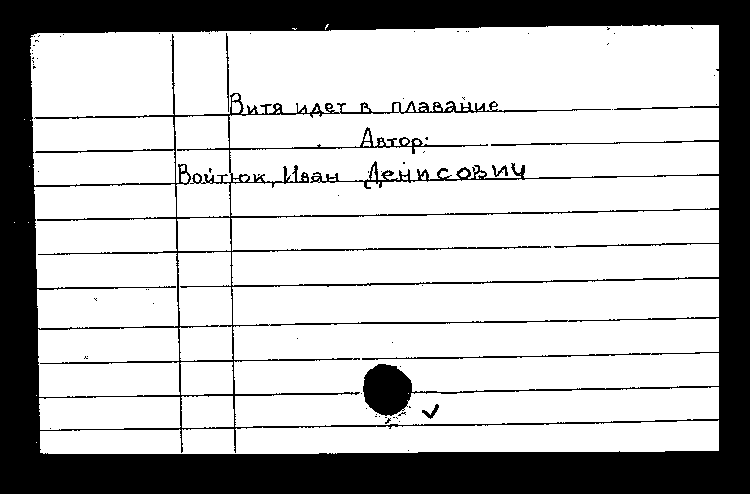 Витя идет в плавание
Автор:
Войтюк, Иван Денисович